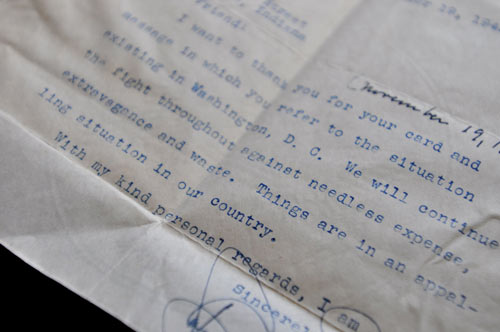 Street
, Indiana
r 19, 194
Friend:
November 19, 1
I want to thank you for your card and
message in which you refer to the situation
existing in Washington, D. C. We will continue
the fight throughout against needless expense,
extravagance and waste. Things are in an appal-
ling situation in our country.
With my kind personal regards, I am
Sincerel